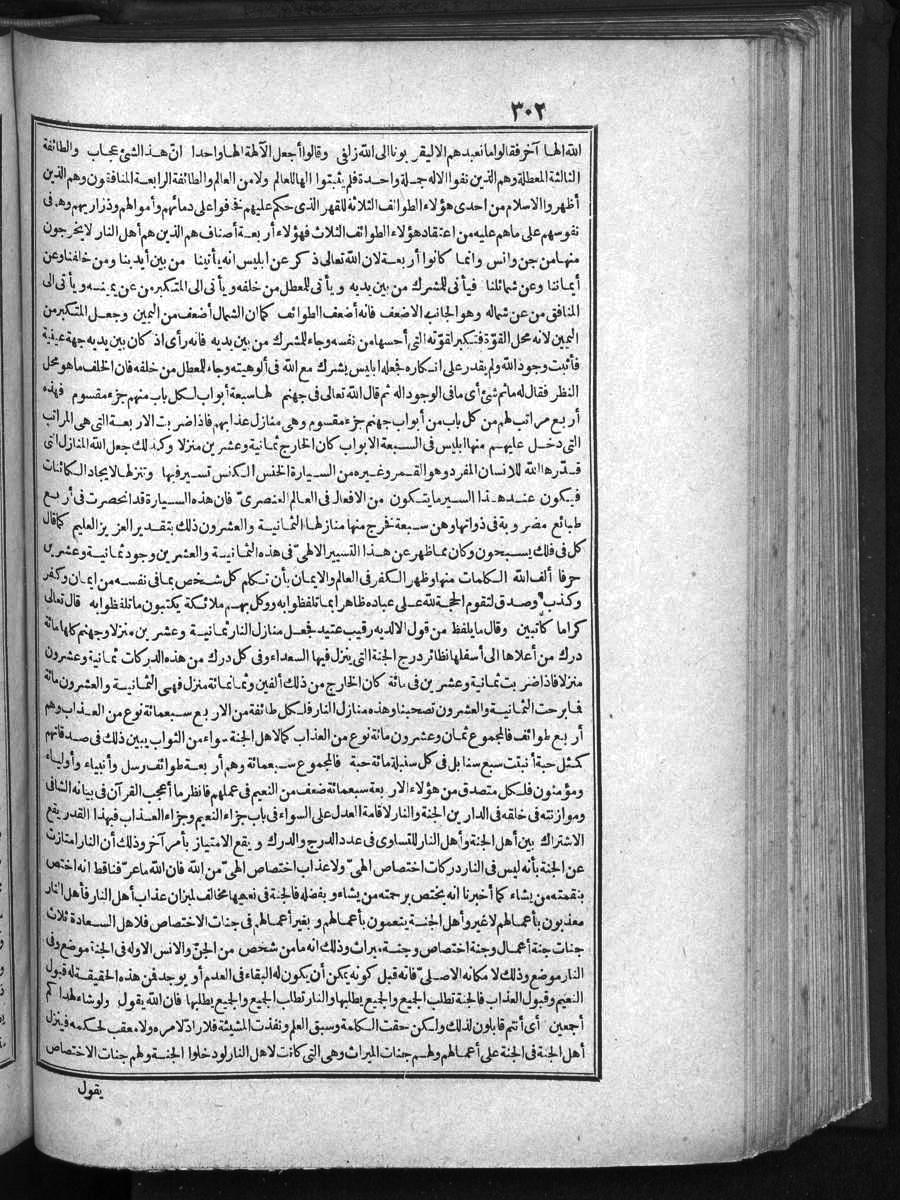 ٣٠٢
الله الها آخر فقالوا ما نعبدهم الا ليقربونا الى الله زلفى وقالوا أجعل الآلهة الها واحدا انّ هذا الشئ عجاب والطائفة
الثالثة المعطلة وهم الذين نفوا الاله جملة واحدة فلم يثبتوا الها للعالم ولا من العالم والطائفة الرابعة المنافقون وهم الذين
أظهروا الاسلام من احدى هؤلاء الطوائف الثلاثة للقهر الذى حكم عليهم فخافوا على دمائهم وأموالهم وذراريهم وهم فى
نفوسهم على ما هم عليه من اعتقاد هؤلاء الطوائف الثلاث فهؤلاء أربعة أصناف هم الذين هم أهل النار لا يخرجون
منها من جن وانس وانما كانوا أربعة لان الله تعالى ذكر عن ابليس انه يأتينا من بين أيدينا ومن خلفنا وعن
أيماننا وعن شمائلنا فيأتى للمشرك من بين يديه ويأتى للمعطل من خلفه ويأتى الى المتكبر من عن يمينه ويأتى الى
المنافق من عن شماله وهو الجانب الاضعف فانه أضعف الطوائف كما ان الشمال أضعف من اليمين وجعل المتكبر من
اليمين لانه محل القوّة فتكبر لقوّته التى أحسها من نفسه وجاء للمشرك من بين يديه فانه رأى اذ كان بين يديه جهة عينية
فأثبت وجود الله ولم يقدر على انكاره فجعله ابليس يشرك مع الله فى ألوهيته وجاء للمعطل من خلفه فان الخلف ما هو محل
النظر فقال له ما ثم شئ أى ما فى الوجود اله ثم قال الله تعالى فى جهنم لها سبعة أبواب لكل باب منهم جزء مقسوم فهذه
أربع مراتب لهم من كل باب من أبواب جهنم جزء مقسوم وهى منازل عذابهم فاذا ضربت الاربعة التى هى المراتب
التى دخل عليهم منها ابليس فى السبعة الابواب كان الخارج ثمانية وعشرين منزلا وكذلك جعل الله المنازل التى
قدّرها الله للانسان المفرد وهو القمر وغيره من السيارة الخنس الكنس تسير فيها وتنزلها لايجاد الكائنات
فيكون عند هذا السير ما يتكون من الافعال فى العالم العنصرىّ فان هذه السيارة قد انحصرت فى أربع
طبائع مضروبة فى ذواتها وهن سبعة فخرج منها منازلها الثمانية والعشرون ذلك بتقدير العزيز العليم كما قال
كل فى فلك يسبحون وكان مما ظهر عن هذا التسيير الالهىّ فى هذه الثمانية والعشرين وجود ثمانية وعشرين
حرفا ألف الله الكلمات منها وظهر الكفر فى العالم والايمان بأن تكلم كل شخص بما فى نفسه من ايمان وكفر
وكذب وصدق لتقوم الحجة لله على عباده ظاهرا بما تلفظوا به ووكل بهم ملائكة يكتبون ما تلفظوا به قال تعالى
كراما كاتبين وقال ما يلفظ من قول الا لديه رقيب عتيد فجعل منازل النار ثمانية وعشرين منزلا وجهنم كلها مائة
درك من أعلاها الى أسفلها نظائر درج الجنة التى ينزل فيها السعداء وفى كل درك من هذه الدركات ثمانية وعشرون
منزلا فاذا ضربت ثمانية وعشرين فى مائة كان الخارج من ذلك ألفين وثمانمائة منزل فهى الثمانية والعشرون مائة
فما برحت الثمانية والعشرون تصحبنا وهذه منازل النار فلكل طائفة من الاربع سبعمائة نوع من العذاب وهم
أربع طوائف فالمجموع ثمان وعشرون مائة نوع من العذاب كما لاهل الجنة سواء من الثواب يبين ذلك فى صدقاتهم
كمثل حبة أنبتت سبع سنابل فى كل سنبلة مائة حبة فالمجموع سبعمائة وهم أربعة طوائف رسل وأنبياء وأولياء
ومؤمنون فلكل متصدق من هؤلاء الاربعة سبعمائة ضعف من النعيم فى عملهم فانظر ما أعجب القرآن فى بيانه الشافى
وموازنته فى خلقه فى الدارين الجنة والنار لاقامة العدل على السواء فى باب جزاء النعيم وجزاء العذاب فبهذا القدر يقع
الاشتراك بين أهل الجنة وأهل النار للتساوى فى عدد الدرج والدرك ويقع الامتياز بأمر آخر وذلك أن النار امتازت
عن الجنة بأنه ليس فى النار دركات اختصاص الهىّ ولا عذاب اختصاص الهىّ من الله فان الله ما عرّفنا قط انه اختص
بنقمته من يشاء كما أخبرنا انه يختص برحمته من يشاء وبفضله فالجنة فى نعيمها مخالف لميزان عذاب أهل النار فأهل النار
معذبون بأعمالهم لا غير وأهل الجنة ينعمون بأعمالهم وبغير أعمالهم فى جنات الاختصاص فلاهل السعادة ثلاث
جنات جنة أعمال وجنة اختصاص وجنة ميراث وذلك انه ما من شخص من الجنّ والانس الا وله فى الجنة موضع وفى
النار موضع وذلك لامكانه الاصلىّ فانه قبل كونه يمكن أن يكون له البقاء فى العدم أو يوجد فمن هذه الحقيقة له قبول
النعيم وقبول العذاب فالجنة تطلب الجميع والجميع يطلبها والنار تطلب الجميع والجميع يطلبها فان الله يقول ولو شاء لهداكم
أجمعين أى أنتم قابلون لذلك ولكن حقت الكلمة وسبق العلم ونفذت المشيئة فلا رادّ لامره ولا معقب لحكمه فينزل
أهل الجنة فى الجنة على أعمالهم ولهم جنات الميراث وهى التى كانت لاهل النار لو دخلوا الجنة ولهم جنات الاختصاص
يقول